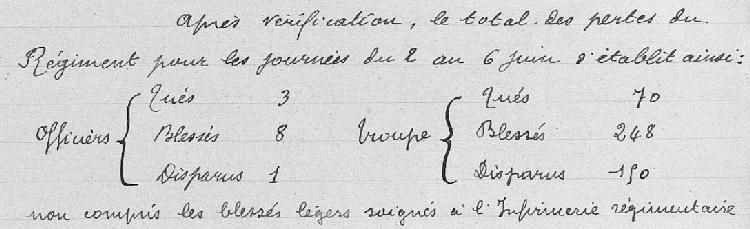 Après vérification, le total des pertes du
Régiment pour les journées du 2 au 6 juin s'établit ainsi:
Tués 3 Tués 70
Officiers { Blessés 8 Troupe { Blessés 248
Disparus 1 Disparus 150
non compris les blessés légers soignés à l'Infirmerie régimentaire